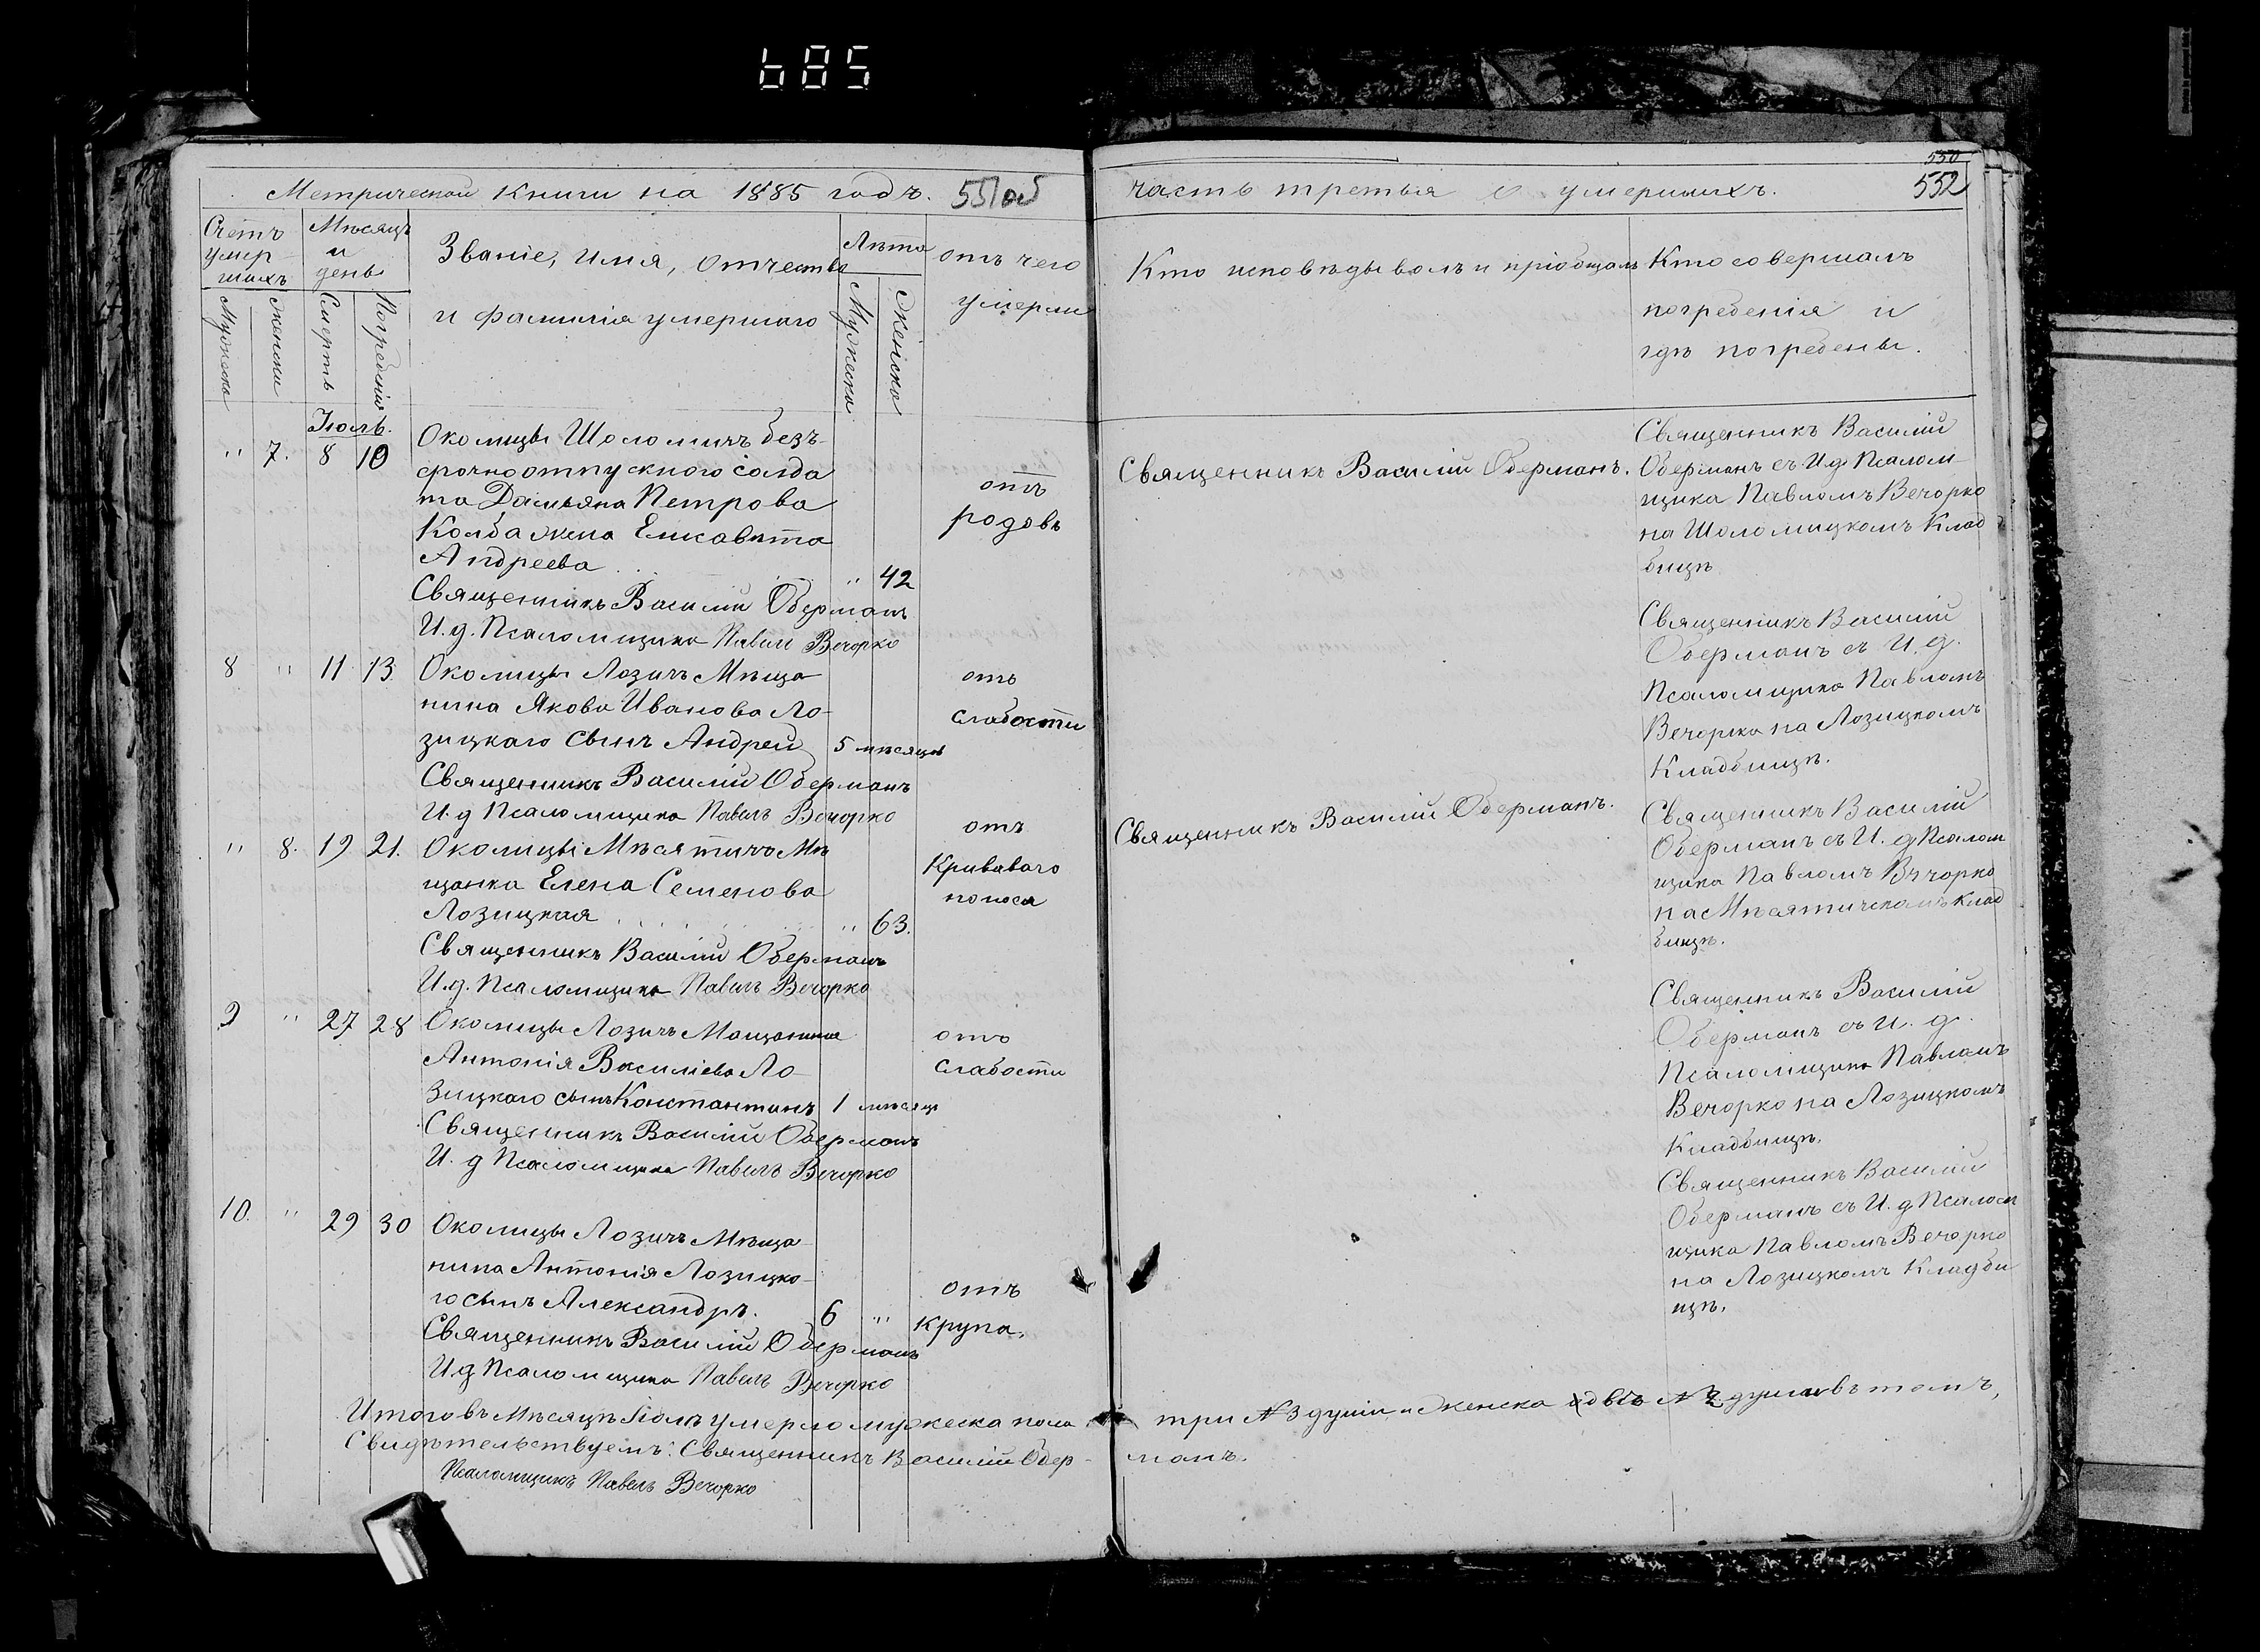 685
Метрической книги на 1885 годъ. 551об
Счетъ умер-
шихъ
Мужеска
Женска
Мѣсяцъ
и
день
Смерть
Погребенія
Званіе, имя, отчество
и фамилія умершаго
Лѣта
Мужеска
Женска
отъ чего
умерли
Іюль.
" 7. 8 10
Околицы Шоломичъ безъ-
срочноотпускного солда
та Дамьяна Петрова
Колба жена Елисавѣта
Андреева " 42
отъ
родовъ
Священникъ Василій Оберманъ
И. д. Псаломщика Павелъ Вечорко
8 " 11 13.
Околицы Лозичъ Мѣща-
нина Якова Иванова Ло-
зицкаго сынъ Андрей 5 мѣсяцевъ
отъ
слабости
Священникъ Василій Оберманъ
И. д Псаломщика Павелъ Вечорко
" 8. 19 21.
Околицы Мѣсятичъ Мѣ
щанка Елена Семенова
Лозицкая " 63.
отъ
Криваваго
поноса
Священникъ Василій Оберманъ
И. д. Псаломщика Павелъ Вечорко
9 " 27 28
Околицы Лозичъ Мещанина
Антонія Василіева Ло-
зицкаго сынъ Константинъ 1 мѣсяцъ
отъ
слабости
Священникъ Василій Оберманъ
И. д Псаломщика Павелъ Вечорко
10. " 29 30
Околицы Лозичъ Мѣща-
нина Антонія Лозицка-
го сынъ Александръ. 6 "
отъ
крупа.
Священникъ Василій Оберманъ
И д Псаломщика Павелъ Вечорко
Итого въ Мѣсяцѣ Іюлѣ умерло мужеска пола
Свидѣтельствуемъ: Священникъ Василій Обер-
Псаломщикъ Павелъ Вечорко
550
552
часть третья о умершихъ.
Кто исповѣдывалъ и пріобщалъ
Кто совершалъ
погребенія и
гдѣ погребены.
Священникъ Василій Оберманъ.
Священникъ Василій
Оберманъ съ И. д. Псалом-
щика Павломъ Вечорко
на Шоломицкомъ Клад
бищѣ
Священникъ Василій
Оберманъ съ И. д.
Псаломщика Павломъ
Вечорко на Лозицкомъ
Кладбищѣ.
Священникъ Василій Оберманъ.
Священникъ Василій
Оберманъ съ И. д Псалом
щика Павломъ Вечорко
на Мѣсятическомъ Клад
бищѣ.
Священникъ Василій
Оберманъ съ И. д.
Псаломщика Павломъ
Вечорко на Лозицкомъ
Кладбищѣ.
Священникъ Василій
Оберманъ съ И. д Псалом
щика Павломъ Вечорко
на Лозицкомъ Кладби
щѣ.
три № 3 души и женска двѣ № 2 души въ томъ,
манъ.